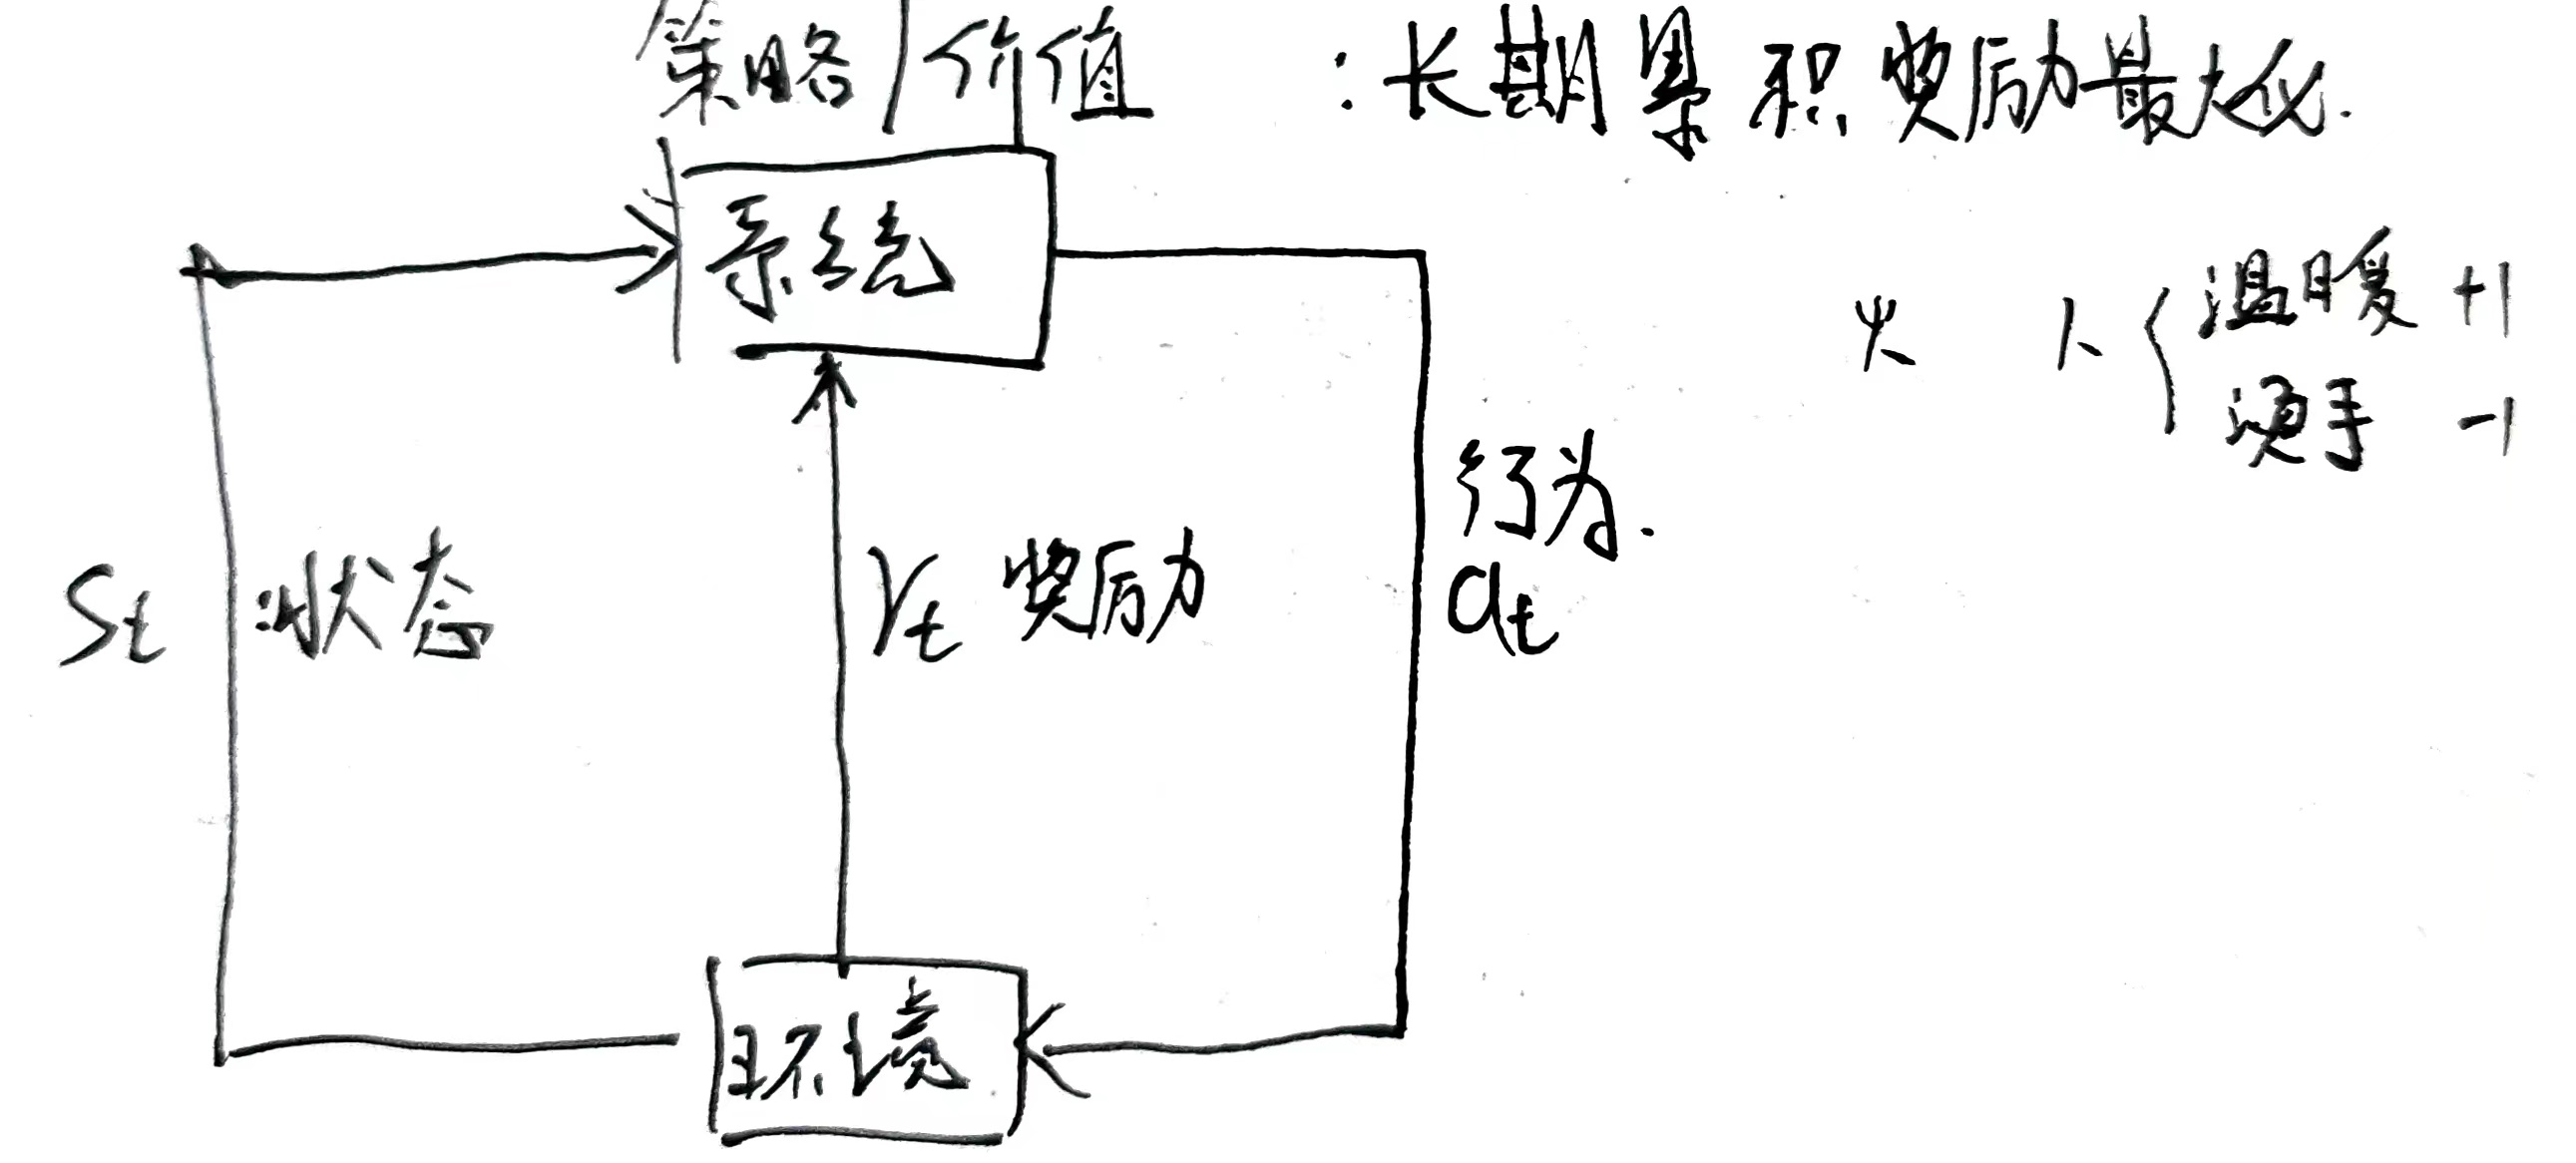 策略/价值 :长期累积奖励最大化.
系统
火 人{温暖 +1
烫手 -1
行为.
at
St :状态
rt 奖励
环境